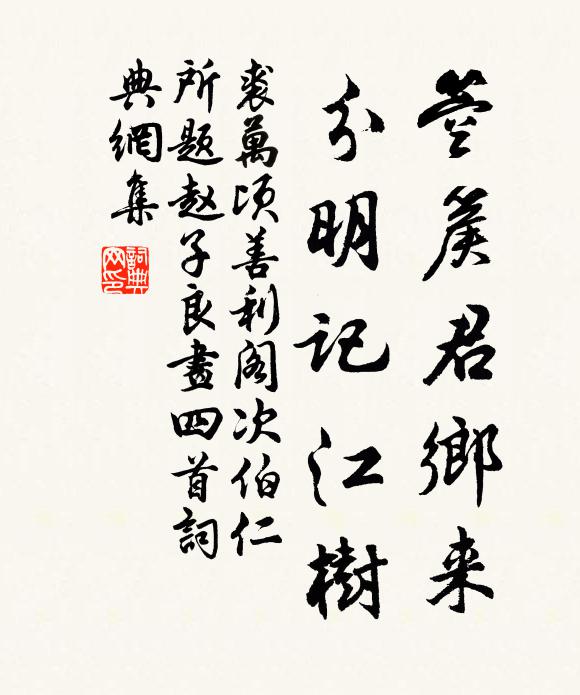 箜篌君鄉来
分明記江樹
裘萬頃善利閣次伯仁
所題趙子良畫四首詞
典網集
詞典网印